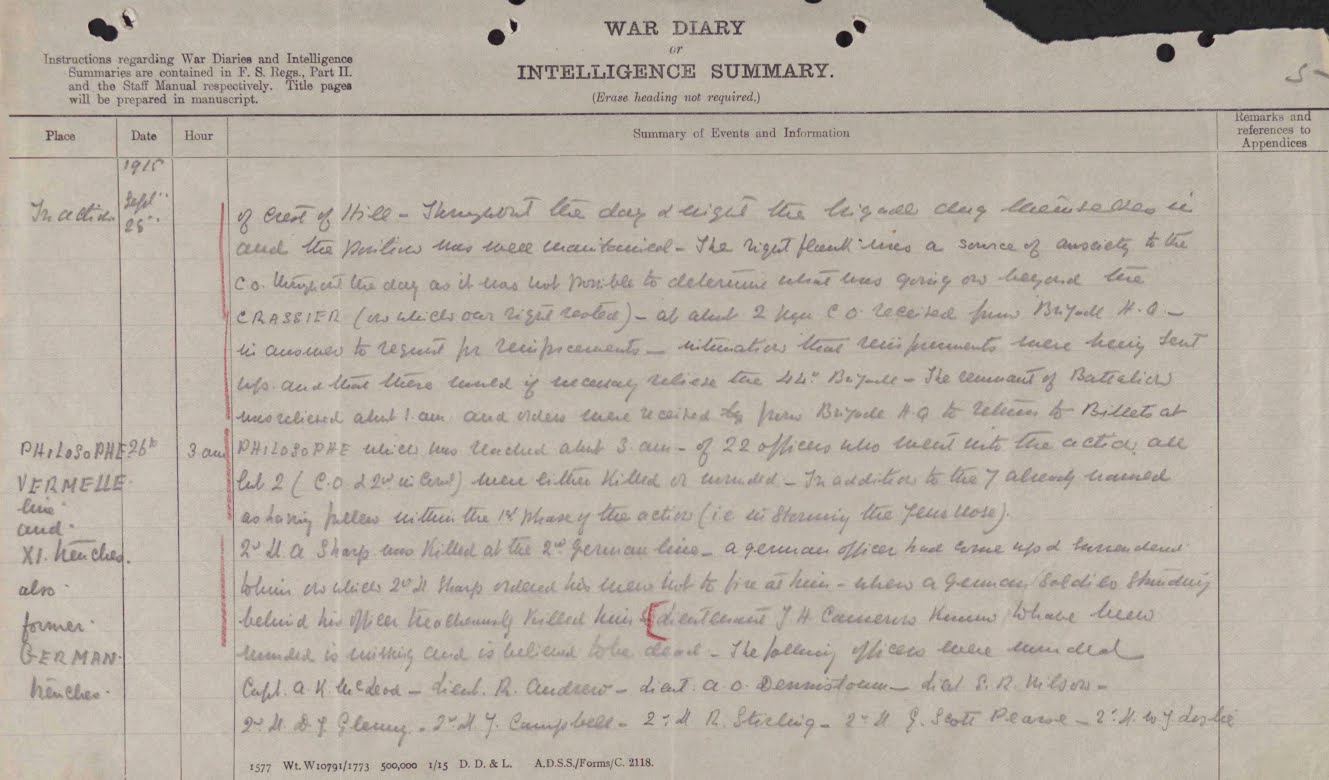 WAR DIARY
or
INTELLIGENCE SUMMARY.
(Erase heading not required.)
Instructions regarding War Diaries and Intelligence
Summaries are contained in F. S. Regs., Part II.
and the Staff Manual respectively. Title pages
will be prepared in manuscript.
5
Place
Date
Hour
Summary of Events and Information
Remarks and
references to
Appendices
1915
In action
Sept
25
of Crest of Hill – Throughout the day & night the brigade dug themselves in
and the position was well maintained – The right flank was a source of anxiety to the
C.O. throughout the day as it was not possible to determine what was going on beyond the
CRASSIER (on which our right rested) – at about 2 C.O. received from Brigade H.Q –
in answer to request for reinforcements – intimation that reinforcements were being sent
up and that these would if necessary relieve the 44th Brigade – The remnant of Battalion
was relieved about 1 am and orders were received from Brigade H.Q to return to Billets at
PHILOSOPHE 26th 3 am PHILOSOPHE which was reached about 3 am – of 22 officers who went into the action all
VERMELLE but 2 (C.O & 2nd in Comd) were either killed or wounded – In addition to the 7 already named
line as having fallen within the 1st phase of the action (i.e. in storming the Lens Rd).
and
XI. trenches. 2nd Lt A Sharp was killed at the 2nd German line – a german officer had come up & surrendered
also to him on which 2nd Lt Sharp ordered his men not to fire at him – when a german soldier standing
former behind his officer treacherously killed him (Lieutenant J H Cameron known to have been
GERMAN wounded is missing and is believed to be dead – The following officers were wounded
trenches Capt. A K McLeod – Lieut. R. Andrew – Lieut. A.O. Dennistoun – Lieut S.R. Wilson –
2nd Lt D J Glenny – 2nd Lt J. Campbell – 2nd Lt R. Stirling – 2nd Lt G. Scott Pearse – 2nd Lt W J Leslie
1577 Wt. W10791/1773 500,000 1/15 D. D. & L. A.D.S.S./Forms/C. 2118.